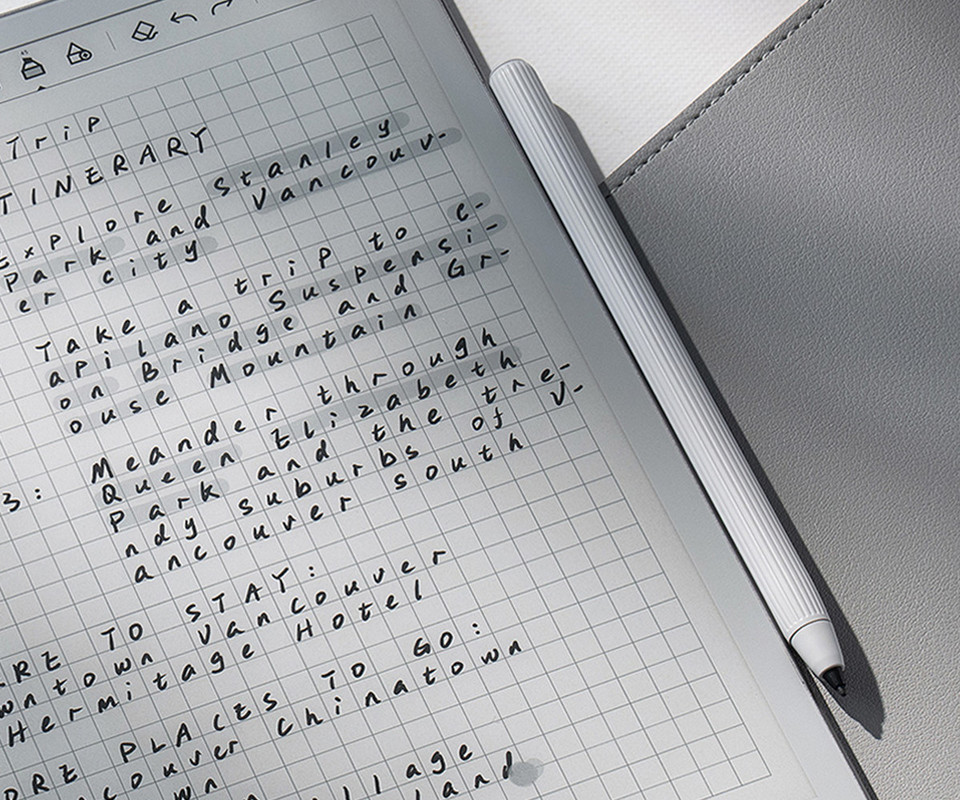 Trip
TINERARY
Explore Stanley
Park and Vancouv-
er city
Take a trip to C-
apilano Suspensi-
on Bridge and Gr-
ouse Mountain
3: Meander through
Queen Elizabeth
Park and the tre-
ndy suburbs of V-
ancouver south
ERE TO STAY:
wntown Vancouver
Hermitage Hotel
ORE PLACES TO GO:
couver Chinatown
wn
llage
land